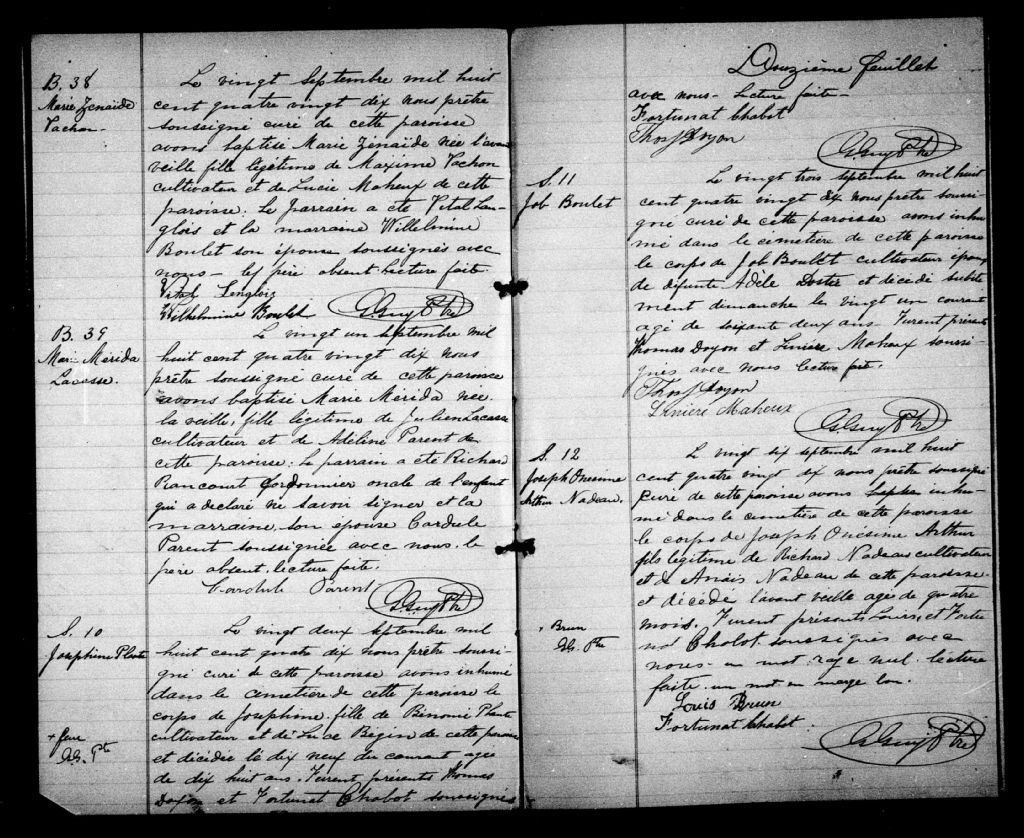 B. 38
Marie Zénaïde
Vachon.
Le vingt Septembre mil huit
cent quatre vingt dix nous prêtre
soussigné curé de cette paroisse
avons baptisé Marie Zénaïde née l'avant
veille fille légitime de Maxime Vachon
cultivateur et de Lucie Maheux de cette
paroisse. Le parrain a été Vital Lan-
glois et la marraine Willelmine
Boulet son épouse soussignés avec
nous – le père absent. Lecture faite.
Vital Lenglois
Wilhelmine Boulet
Ptre
B. 39
Marie Mérida
Lacasse.
Le vingt un septembre mil
huit cent quatre vingt dix nous
prêtre soussigné curé de cette paroisse
avons baptisé Marie Mérida née
la veille, fille légitime de Julien Lacasse
cultivateur et de Adéline Parent de
cette paroisse. Le parrain a été Richard
Rancourt Cordonnier oncle de l'enfant
qui a déclaré ne savoir signer et la
marraine son épouse Cordule
Parent soussignée avec nous. le
père absent. lecture faite.
Cordule Parent
Ptre
S. 10
Josephine Plante
Le vingt deux septembre mil
huit cent quatre dix nous prêtre soussi-
gné curé de cette paroisse avons inhumé
dans le cimetière de cette paroisse le
corps de Josephine fille de Binomi Plante
cultivateur et de Luce Begin de cette paroisse
et décédée le dix neuf du courant agée
de dix huit ans. Furent présents Thomas
Doyon et Fortunat Chabot soussignés
Ptre
Douzième feuillet
avec nous – Lecture faite –
Fortunat Chabot
Thos Doyon
Ptre
S. 11
Job Boulet
Le vingt trois septembre mil huit
cent quatre vingt dix nous prêtre soussi-
gné curé de cette paroisse avons inhu-
mé dans le cimetière de cette paroisse
le corps de Job Boulet cultivateur époux
de défunte Adèle et décédé subite-
ment dimanche le vingt un courant
agé de soixante deux ans. Furent présents
Thomas Doyon et Linière Maheux soussi-
gnés avec nous lecture faite.
Thos Doyon
Linière Maheux
Ptre
S. 12
Joseph Onésime
Arthur Nadeau.
Le vingt six septembre mil huit
cent quatre vingt dix nous prêtre soussigné
curé de cette paroisse avons inhu-
mé dans le cimetière de cette paroisse
le corps de Joseph Onésime Arthur
fils légitime de Richard Nadeau cultivateur
et de Anaïs Nadeau de cette paroisse
et décédé l'avant veille agé de quatre
mois. Furent présents Louis + et Fortu-
nat Chabot soussignés avec
nous – un mot rayé nul. lecture
faite. un mot en marge bon.
+ Brun
Ptre
Louis Brun
Fortunat Chabot.
Ptre